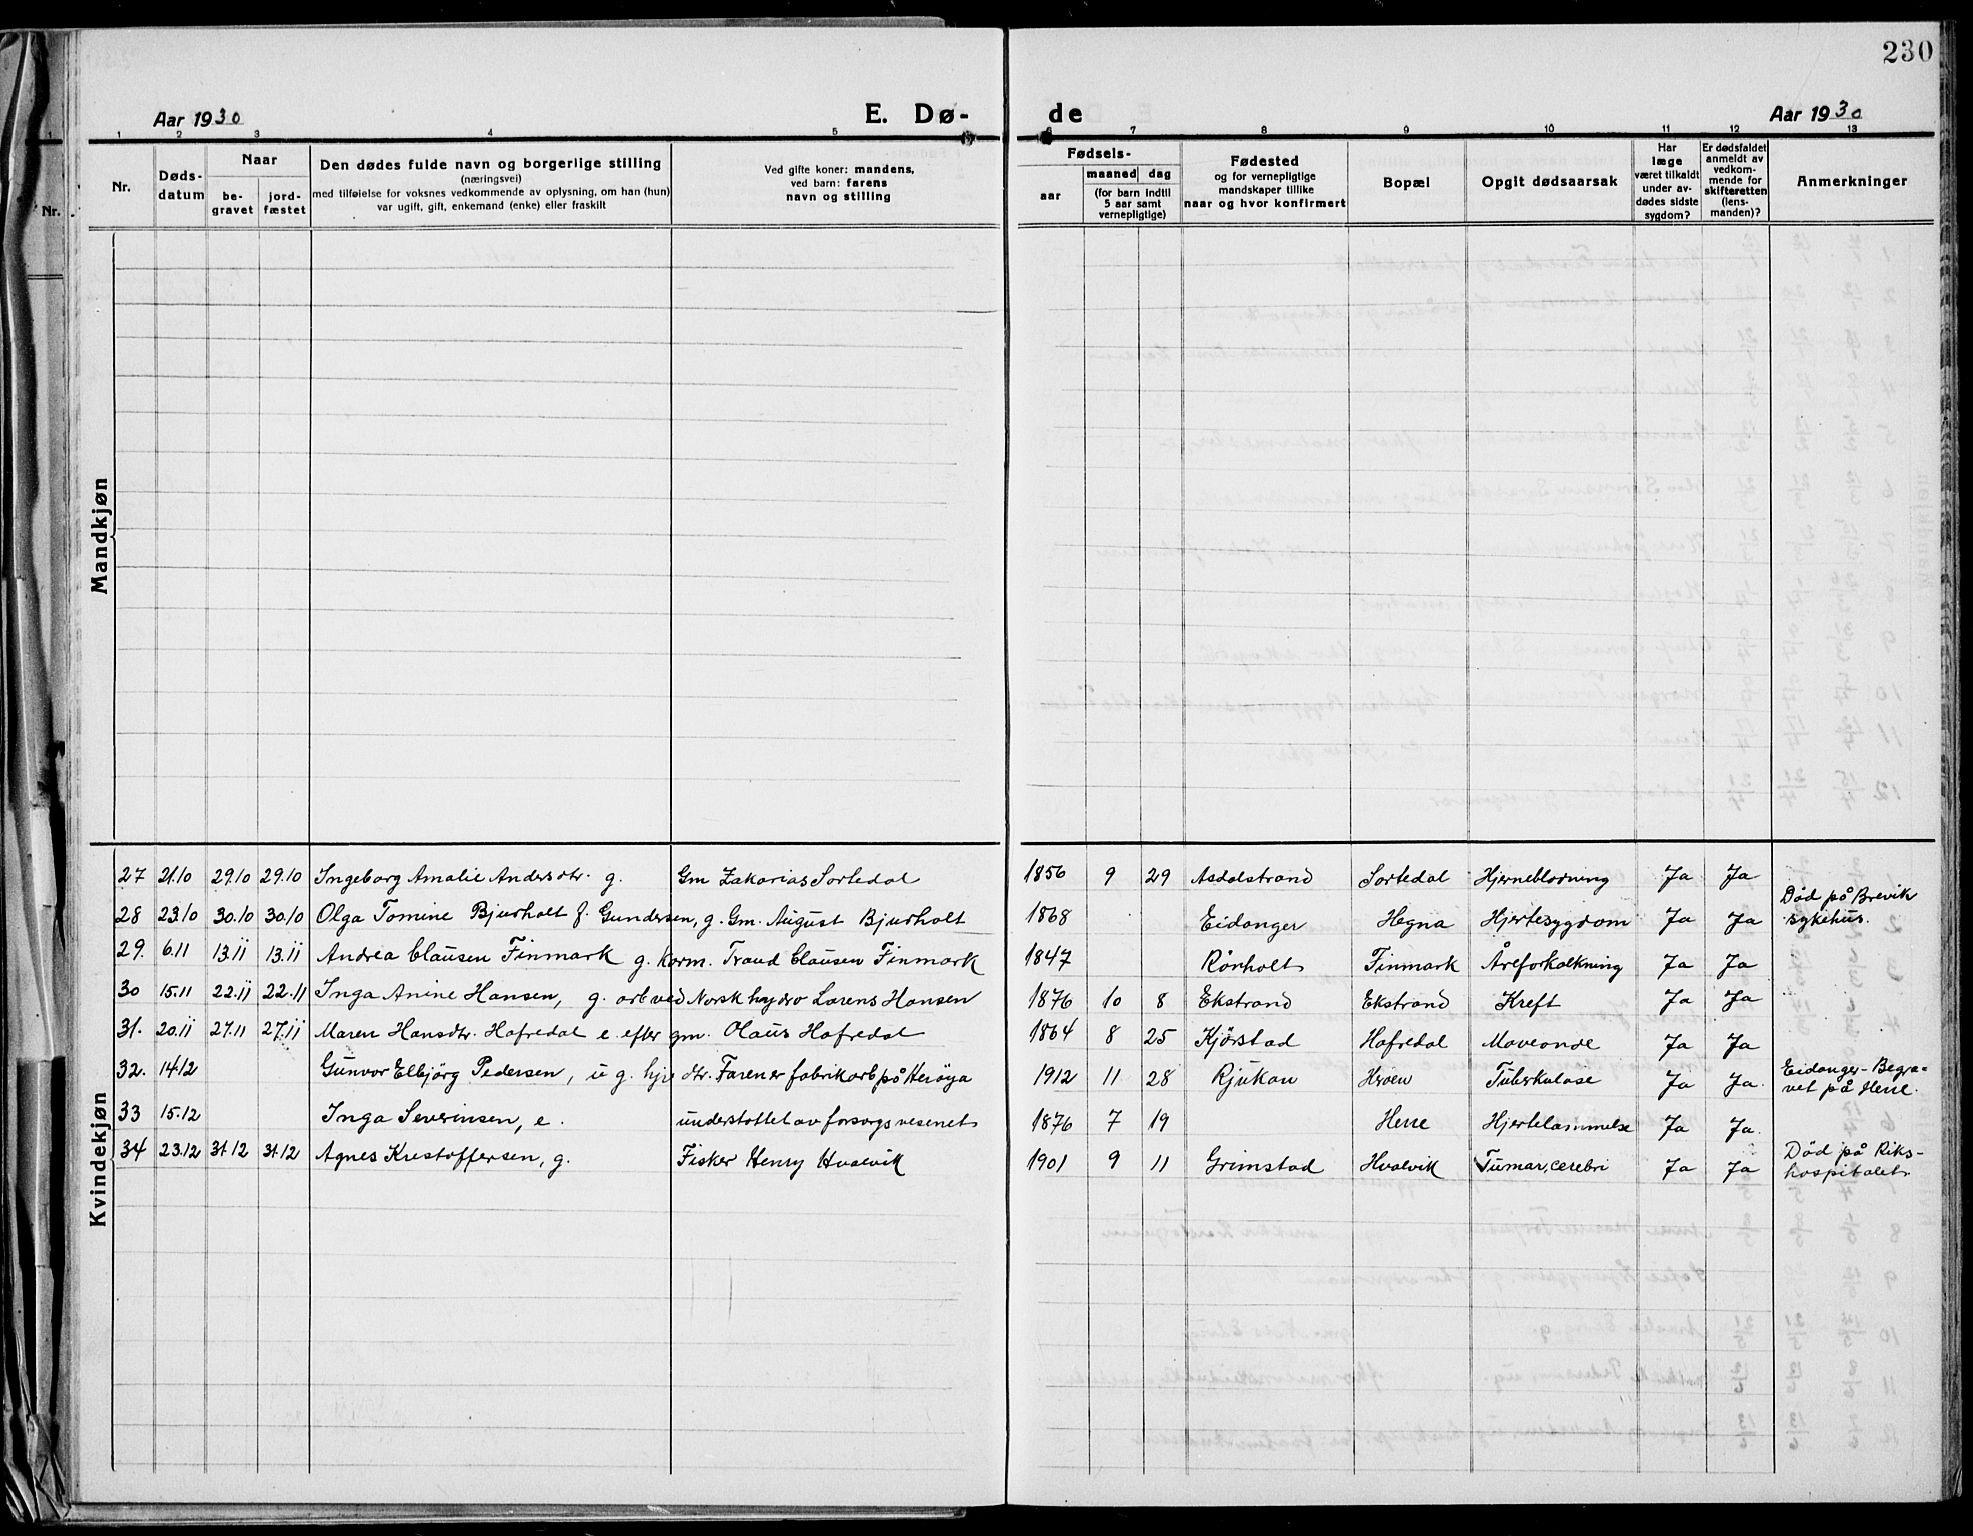 230
Aar 1930
E. Dø-
de
Aar 1930
1 2 3 4 5 6 7 8 9 10 11 12 13
Nr.
Døds-
datum
Naar
be-
gravet
jord-
fæstet
Den dødes fulde navn og borgerlige stilling
(næringsvei)
med tilføielse for voksnes vedkommende av oplysning, om han (hun)
var ugift, gift, enkemand (enke) eller fraskilt
Ved gifte koner: mandens,
ved barn: farens
navn og stilling
Fødsels-
aar
maaned dag
(for barn indtil
5 aar samt
vernepligtige)
Fødested
og for vernepligtige
mandskaper tillike
naar og hvor konfirmert
Bopæl
Opgit dødsaarsak
Har
læge
været tilkaldt
under av-
dødes sidste
sygdom?
Er dødsfaldet
anmeldt av
vedkom-
mende for
skifteretten
(lens-
manden)?
Anmerkninger
Mandkjøn
Kvindekjøn
27 21.10 29.10 29.10 Ingeborg Amalie Andersdtr. g. Gm Zakarias Sortedal 1856 9 29 Asdalstrand Sortedal Hjerneblødning Ja Ja
28 23.10 30.10 30.10 Olga Tomine Bjurholt f. Gundersen, g. Gm. August Bjurholt 1868 Eidanger Hegna Hjertesygdom Ja Ja Død på Brevik
sykehus.
29. 6.11 13.11 13.11 Andrea Clausen Finmark g. Korm. Traud Clausen Finmark 1847 Rørholt Finmark Åreforkalkning Ja Ja
30 15.11 22.11 22.11 Inga Anine Hansen, g. arb ved Norsk hydro Lorens Hansen 1876 10 8 Ekstrand Ekstrand Kreft Ja Ja
31. 20.11 27.11 27.11 Maren Hansdtr. Hafredal e. efter gm. Olaus Hafredal 1864 8 25 Kjørstad Hafredal Maveonde Ja Ja
32. 14.12 Gunvor Elbjörg Pedersen, u g. hje dtr. Faren er fabrikarb på Herøya 1912 11 28 Rjukan Herøen Tuberkulose Ja Ja. Eidanger - Begra-
vet på Herre.
33 15.12 Inga Severinsen, e. understøttet av forsorgsvesenet 1876 7 19 Herre Hjertelammelse Ja Ja.
34 23.12 31.12 31.12 Agnes Kristoffersen, g. Fisker Henry Hvalvik 1901 9 11 Grimstad Hvalvik Tumar, cerebri Ja Ja Død på Riks-
hospitalet